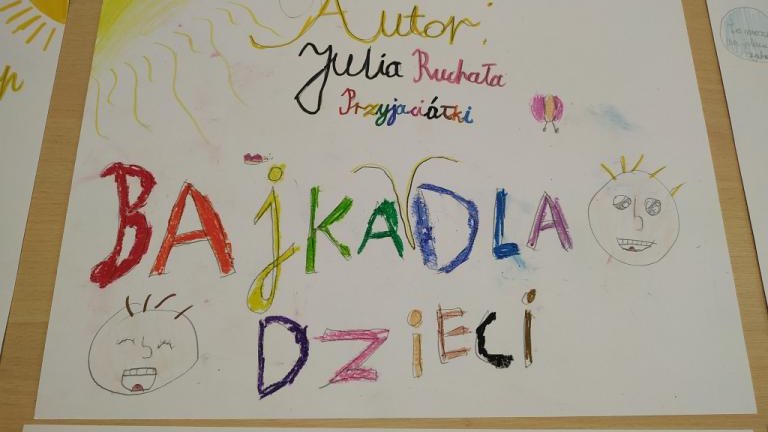 Autor:
Julia Ruchała
Przyjaciółki
BAjKA DLA
DZiECi